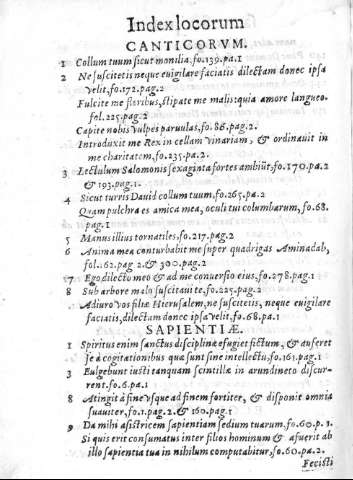 Index locorum
CANTICORVM.
1 Collum tuum sicut monilia. fo.139.pa.1
2 Ne suscitetis neque euigilare faciatis dilectam donec ipsa
velit, fo.172.pag.2
Fulcite me floribus, stipate me malis quia amore langueo.
fol.225.pag.2
Capite nobis vulpes paruulas, fo.86.pag.2.
Introduxit me Rex in cellam vinariam, & ordinauit in
me charitatem, fo.235.pa.2.
3 Lectulum Salomonis sexaginta fortes ambiũt, fo.170.pa.2
& 193.pag.1.
4 Sicut turris Dauid collum tuum, fo.265.pa.2
Quam pulchra es amica mea, oculi tui columbarum, fo.68.
pag.1
5 Manus illius tornatiles, fo.217.pag.2
6 Anima mea conturbabit me super quadrigas Aminadab,
fol.162.pag 2. & 300.pag.2
7 Ego dilecto meo & ad me conuersio eius, fo.278.pag.1
8 Sub arbore malu suscitaui te, fo.225.pag.2
Adiuro vos filiæ Hierusalem, ne suscitetis, neque euigilare
faciatis, dilectam donec ipsa velit, fo.68.pa.1
SAPIENTIÆ.
1 Spiritus enim sanctus disciplinæ effugiet fictum, & auferet
se à cogitationibus quæ sunt sine intellectu, fo.161.pag.1
3 Fulgebunt iusti tanquam scintillæ in arundineto discur-
rent. fo.6.pa.1
8 Atingit à fine vsque ad finem fortiter, & disponit omnia
suauiter, fo.1.pag.2. & 160.pag.1
9 Da mihi asistricem sapientiam sedium tuarum. fo.60.p.1.
Si quis erit consumatus inter filios hominum & afuerit ab
illo sapientia tua in nihilum computabitur, fo.60.pa.2.
Fecisti